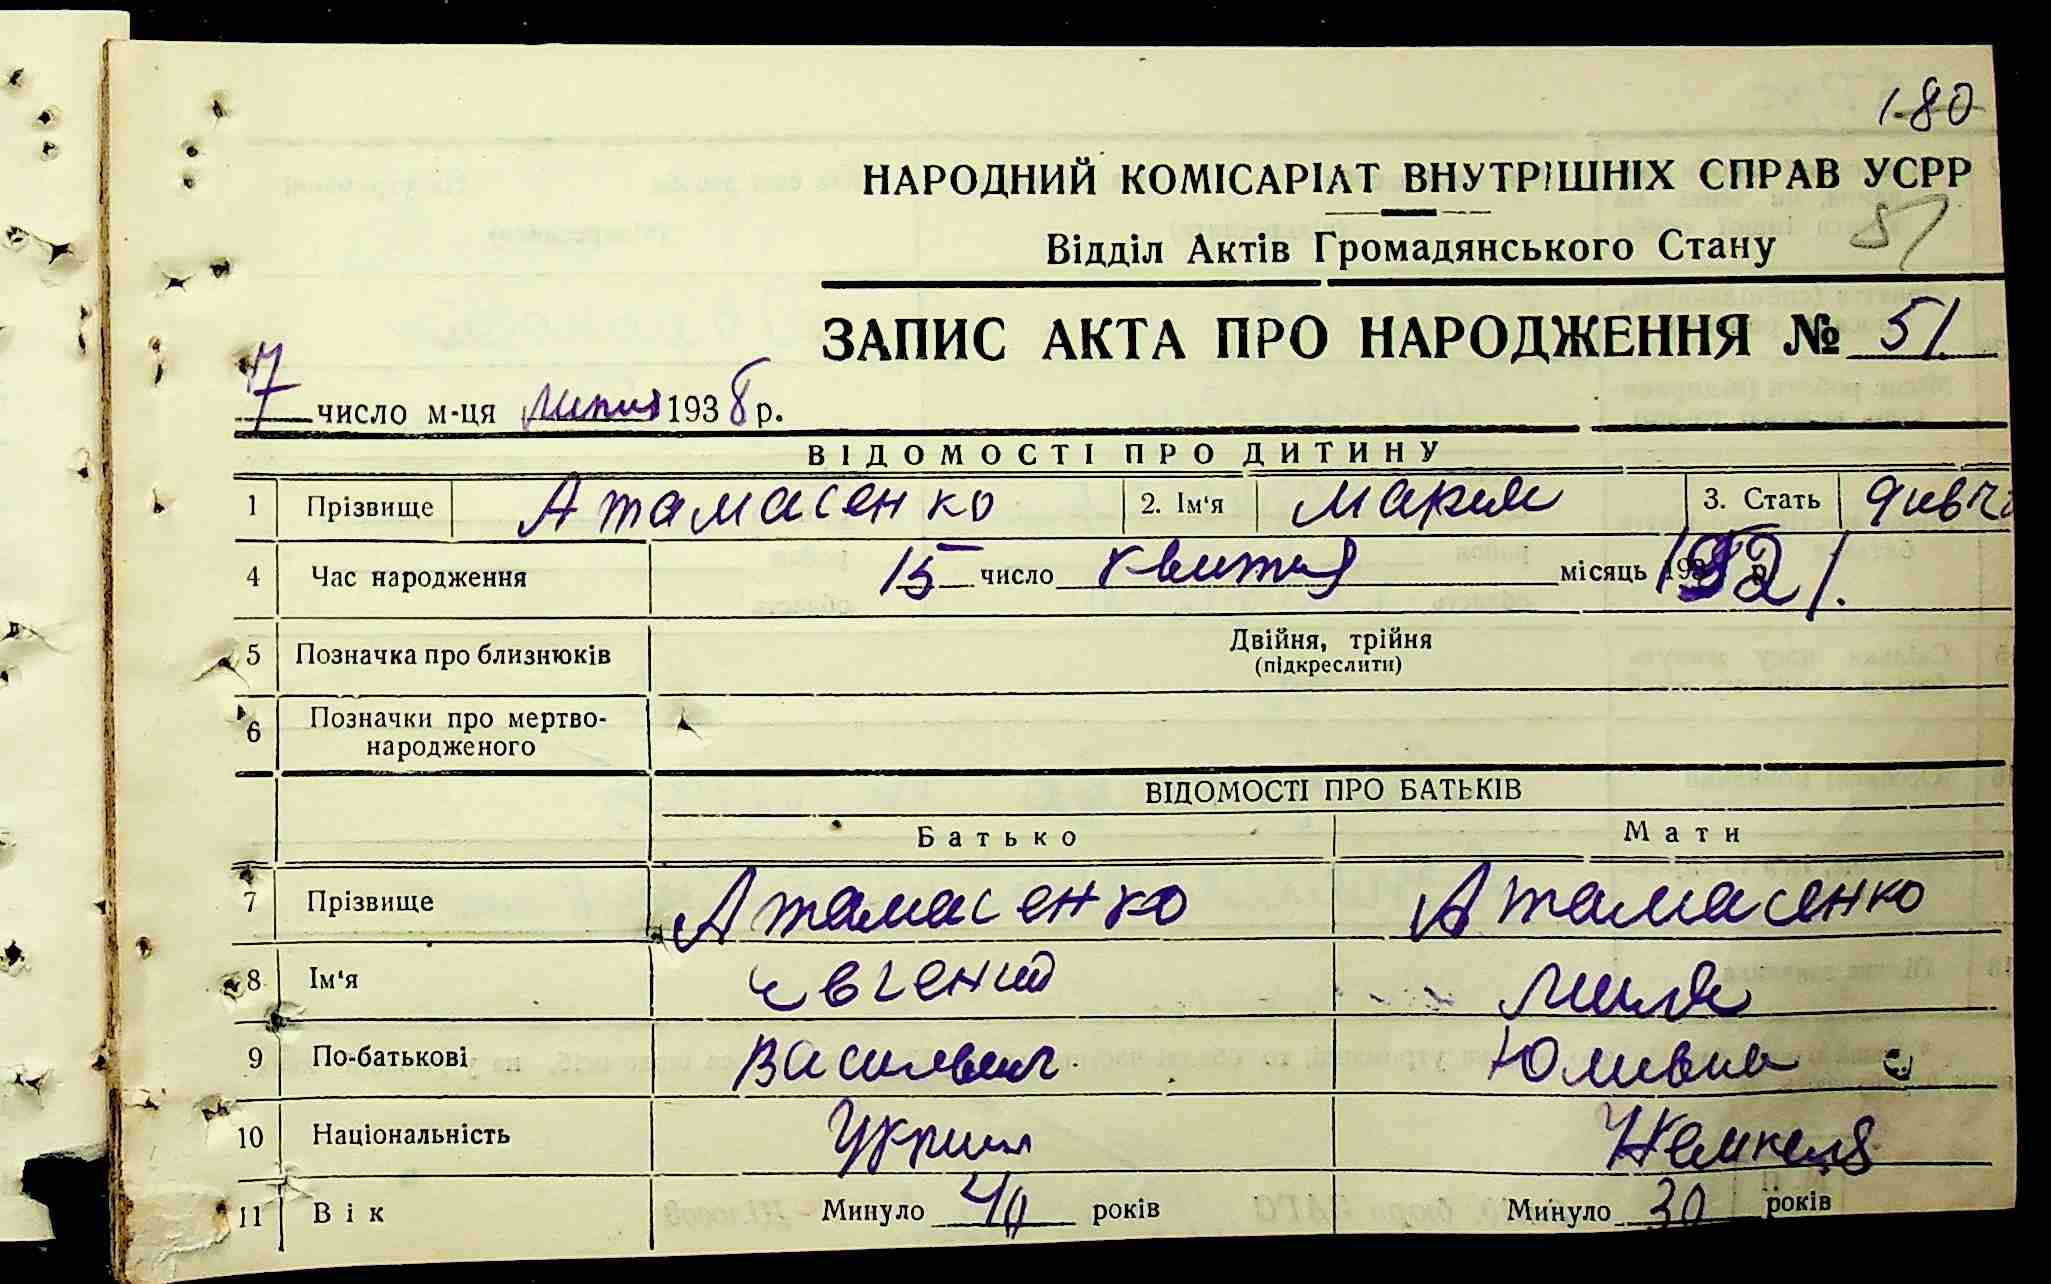 180
НАРОДНИЙ КОМІСАРІАТ ВНУТРІШНІХ СПРАВ УСРР
Відділ Актів Громадянського Стану 51
ЗАПИС АКТА ПРО НАРОДЖЕННЯ № 51.
7 число м-ця липня 1938 р.
ВІДОМОСТІ ПРО ДИТИНУ
1 Прізвище Атамасенко 2. Ім'я Мария 3. Стать
4 Час народження 15 число квитня місяць 1921.
5 Позначка про близнюків Двійня, трійня
(підкреслити)
6 Позначки про мертво-
народженого
ВІДОМОСТІ ПРО БАТЬКІВ
Батько Мати
7 Прізвище Атамасенко Атамасенко
8 Ім'я Євгений
9 По-батькові Васильевич
10 Національність Немкеня
11 Вік Минуло 40 років Минуло 30 років